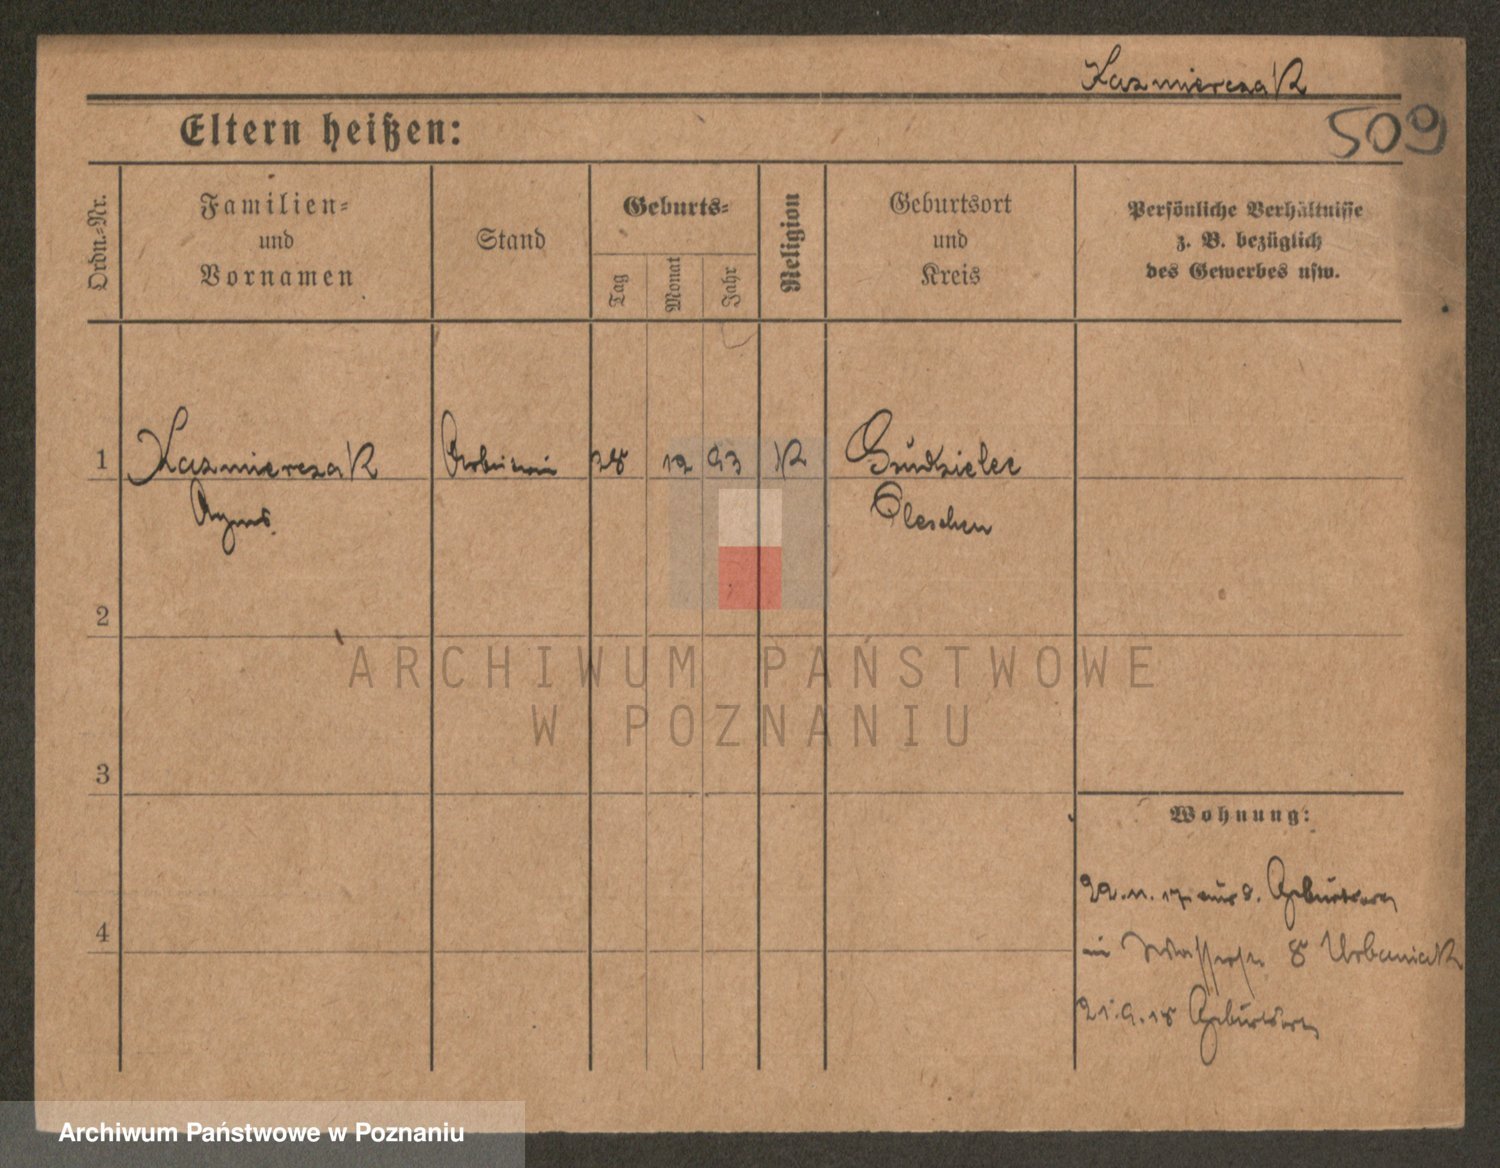 Kazmierczak
509
Eltern heißen:
Ordn.-Nr.
Familien-
und
Vornamen
Stand
Geburts-
Tag
Monat
Jahr
Religion
Geburtsort
und
Kreis
Persönliche Verhältnisse
z. B. bezüglich
des Gewerbes usw.
1
Kazmierczak Arbeiterin 28 12 93 K
Agnes
Pleschen
2
ARCHIWUM PAŃSTWOWE
W POZNANIU
3
Wohnung:
22.11.17 aus d. Geburtsort
in Wasserstr 8 Urbaniak
4
21.9.18 Geburtsort
Archiwum Państwowe w Poznaniu